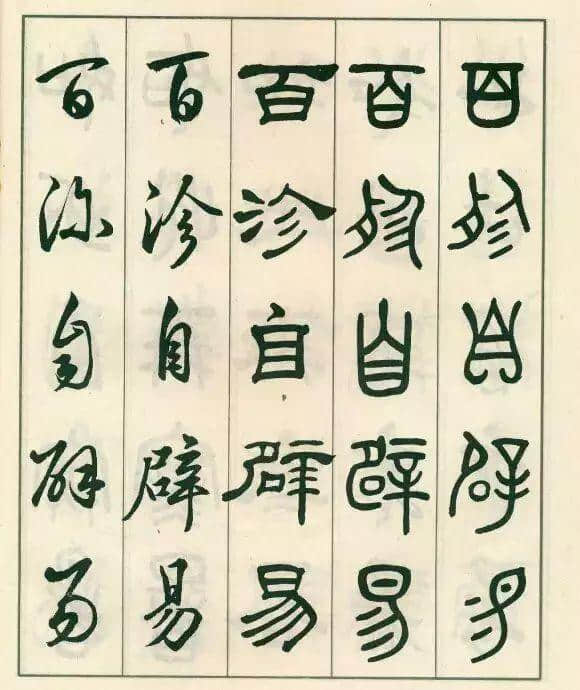 百殄自辟易
百殄自辟易
百沴自辟易
百沴自辟易
百沴自辟易